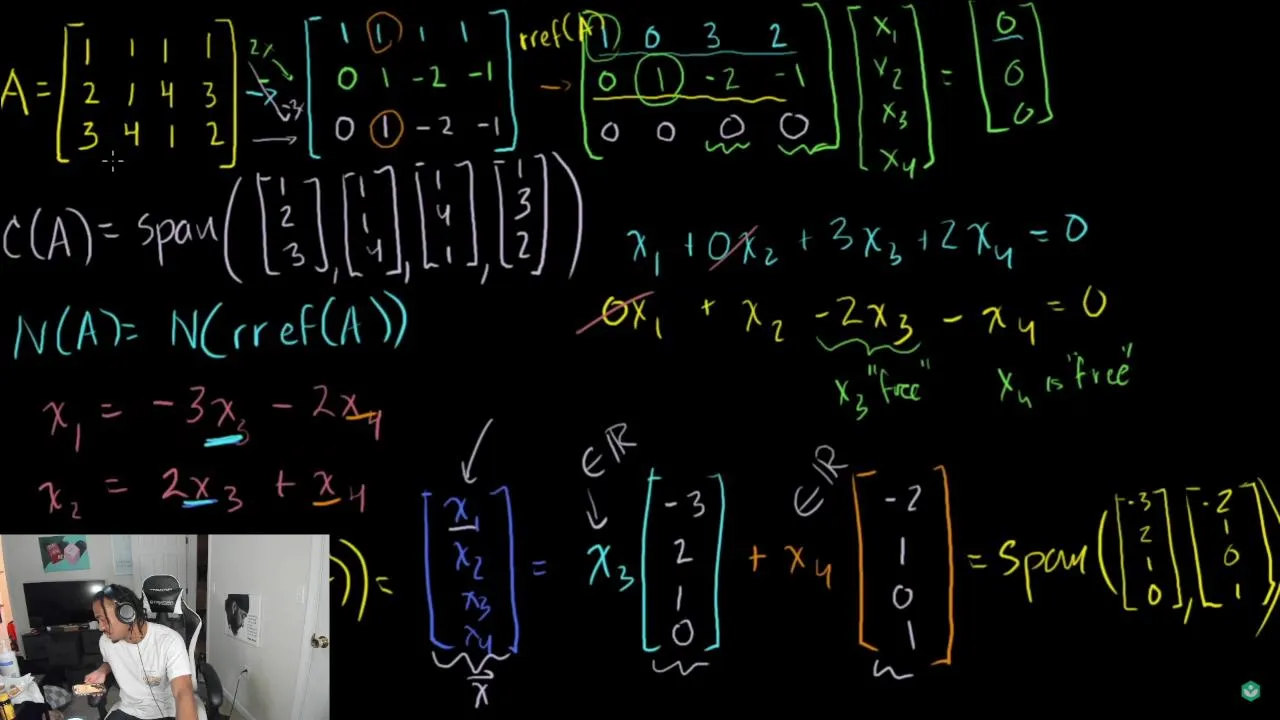 A = [1 1 1 1; 2 1 4 3; 3 4 1 2] → [1 1 1 1; 0 1 -2 -1; 0 1 -2 -1] → rref(A) [1 0 3 2; 0 1 -2 -1; 0 0 0 0] [x₁; x₂; x₃; x₄] = [0; 0; 0]
C(A) = span([1; 2; 3], [1; 1; 4], [1; 4; 1], [1; 3; 2])
x₁ + 0x₂ + 3x₃ + 2x₄ = 0
0x₁ + x₂ - 2x₃ - x₄ = 0
x₃ "free"
x₄ is "free"
N(A) = N(rref(A))
x₁ = -3x₃ - 2x₄
x₂ = 2x₃ + x₄
∈ℝ
∈ℝ
)) = [x₁; x₂; x₃; x₄] = x₃ [-3; 2; 1; 0] + x₄ [-2; 1; 0; 1] = span([-3; 2; 1; 0], [-2; 1; 0; 1])
x⃗